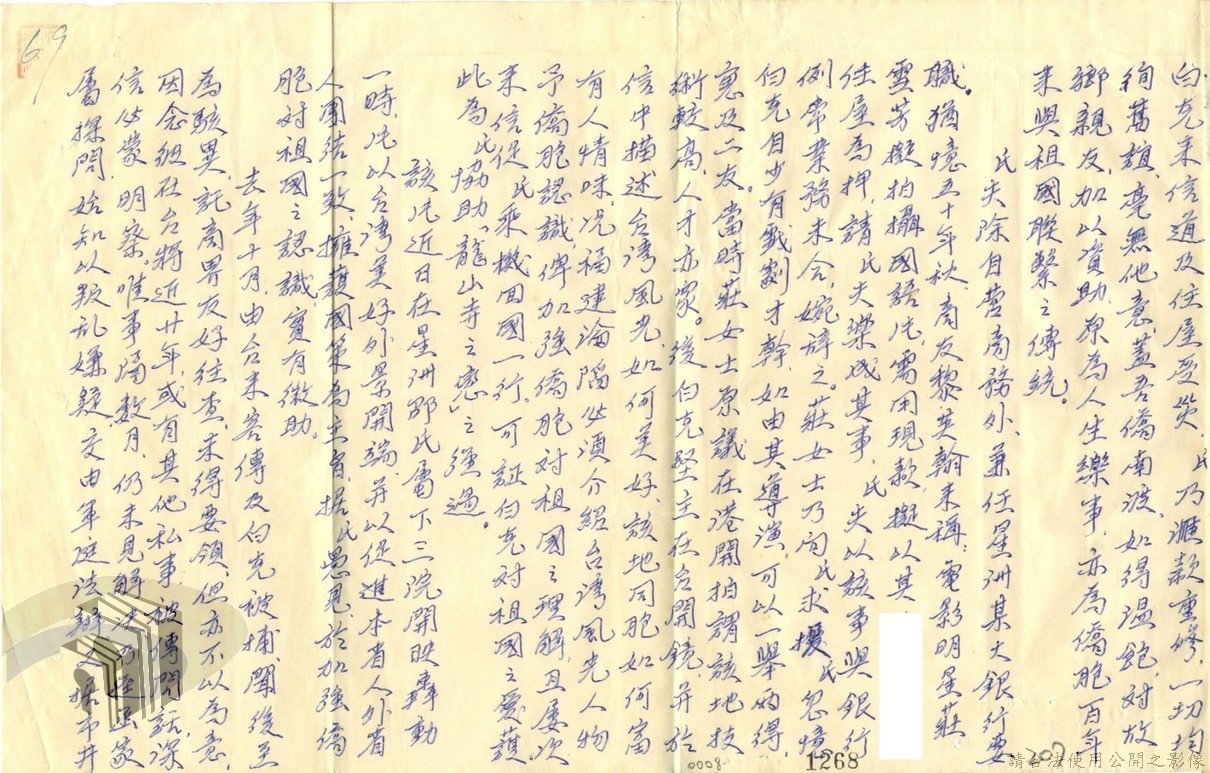 白克來信道及住屋受災，民乃滙款重修，一切均
徇舊誼，毫無他意，蓋吾僑南渡，如得溫飽，對故
鄉親友，加以資助，原為人生樂事，亦為僑胞百年
來與祖國聯繫之傳統。
民夫除自營商務外，兼任星洲某大銀行要
職。猶憶五十年秋，商友黎英翰來稱：電影明星莊
雪芳擬拍攝國語片，需用現款，擬以其
住屋為押，請民夫樂成其事，民夫以該事與銀行
例常業務未合，婉辞之。莊女士乃向民求援，民忽憶
白克自少有戲劇才幹，如由其導演，可以一舉兩得，
惠及二友。當時莊女士原議在港開拍謂該地技
術較高，人才亦眾。後白克堅主在台開鏡，并於
信中描述台湾風光，如何美好，該地同胞如何富
有人情味，况福建淪陷必須介紹台湾風光人物
予僑胞認識，俾加強僑胞對祖國之理解，且屡次
來信促民乘機回國一行，可証白克對祖國之愛護
此為民協助「龍山寺之戀」之經過。
該片近日在星洲邵氏屬下三院開映轟動
一時，片以台湾美好外景開端，并以促進本省人外省
人團結一致，擁護國策為主旨，据民愚見，於加強僑
胞對祖國之認識，實有微助。
去年十月，由台來客傳及白克被捕，聞後至
為駭異，託商界友好往查，未得要領，但亦不以為意，
因念彼在台將近廿年，或有其他私事，被傳問話，深
信必蒙明察。唯事隔数月，仍未見解决，乃
屬探問，始知以叛乱嫌疑，交由軍庭法辦，又据市井
69
202
0008
1268
請合法使用公開之影像